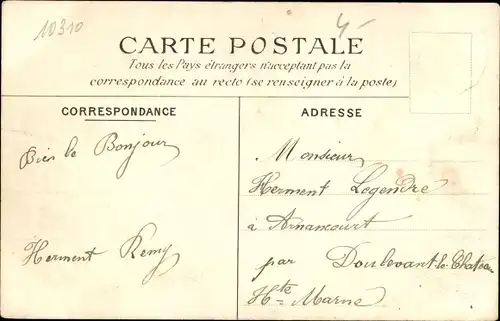 10310
4-
CARTE POSTALE
Tous les Pays étrangers n'acceptant pas la
correspondance au recto (se renseigner à la poste)
CORRESPONDANCE
Bien le Bonjour
Herment Remy
ADRESSE
Monsieur
Herment Legendre
à Arnancourt
par Doulevant-le-Chateau
Hte Marne